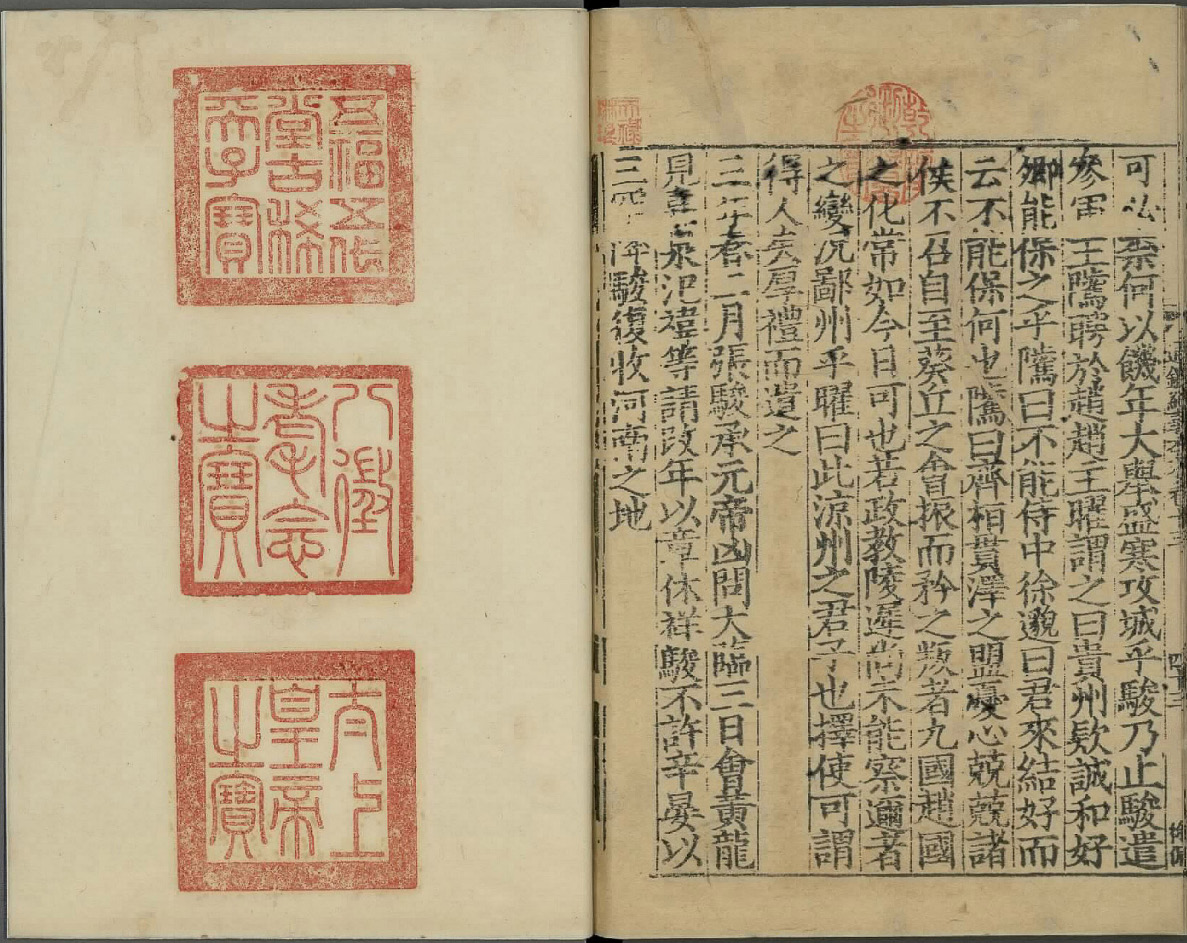 可必柰何以饑年大舉盛寒攻城乎駿乃止駿遣
參軍王騭聘於趙趙主曜謂之曰貴州欵誠和好
卿能保之乎騭曰不能侍中徐邈曰君來結好而
云不能保何也騭曰齊桓貫澤之盟憂心兢兢諸
侯不召自至葵丘之會振而矜之叛者九國趙國
之化常如今日可也若政教陵遲尚未能察邇者
之變況鄙州乎曜曰此涼州之君子也擇使可謂
得人矣厚禮而遣之
三年春二月張駿承元帝凶問大臨三日會黃龍
見 泉氾禕等請改年以章休祥駿不許辛晏以
三 降駿復收河南之地
五福五代
堂古稀
天子寶
八徵
耄念
之寶
太上
皇帝
之寶